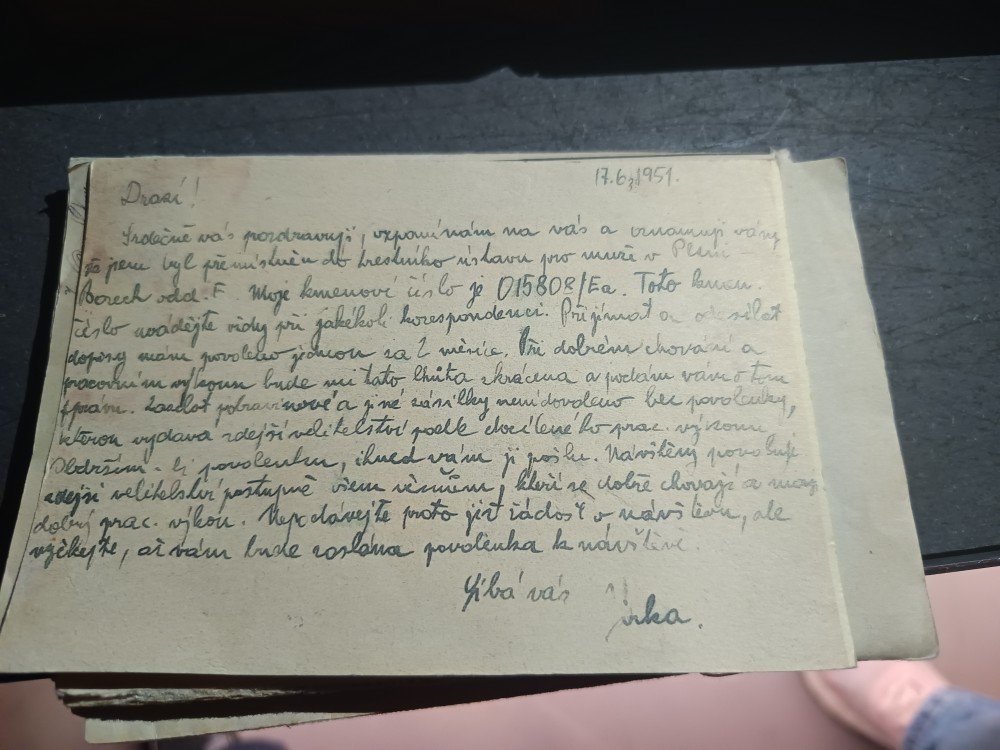 17.6.1951.
Drazí!
Srdečně vás pozdravuji, vzpomínám na vás a oznamuji vám,
že jsem byl přemístněn do trestního ústavu pro muže v Plzni
Borech odd. F. Moje kmenové číslo je 015808/Ea. Toto kmen.
číslo uvádějte vždy při jakékoli korespondenci. Přijímat a odesílat
dopisy mám povoleno jednou za 2 měsíce. Při dobrém chování a
pracovním výkonu bude mi tato lhůta zkrácena a podám vám o tom
zprávu. Zasílat potravinové a jiné zásilky není dovoleno bez povolenky,
kterou vydává zdejší velitelství podle docíleného prac. výkonu.
Obdržím-li povolenku, ihned vám ji pošlu. Návštěvy povoluje
zdejší velitelství postupně všem vězňům, kteří se dobře chovají a mají
dobrý prac. výkon. Nepodávejte proto již žádost o návštěvu, ale
vyčkejte, až vám bude zaslána povolenka k návštěvě.
Líbá vás Jirka.